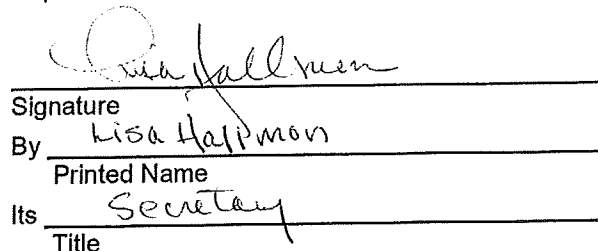 Lisa Hallmon
Signature
By Lisa Hallmon
Printed Name
Its Secretary
Title